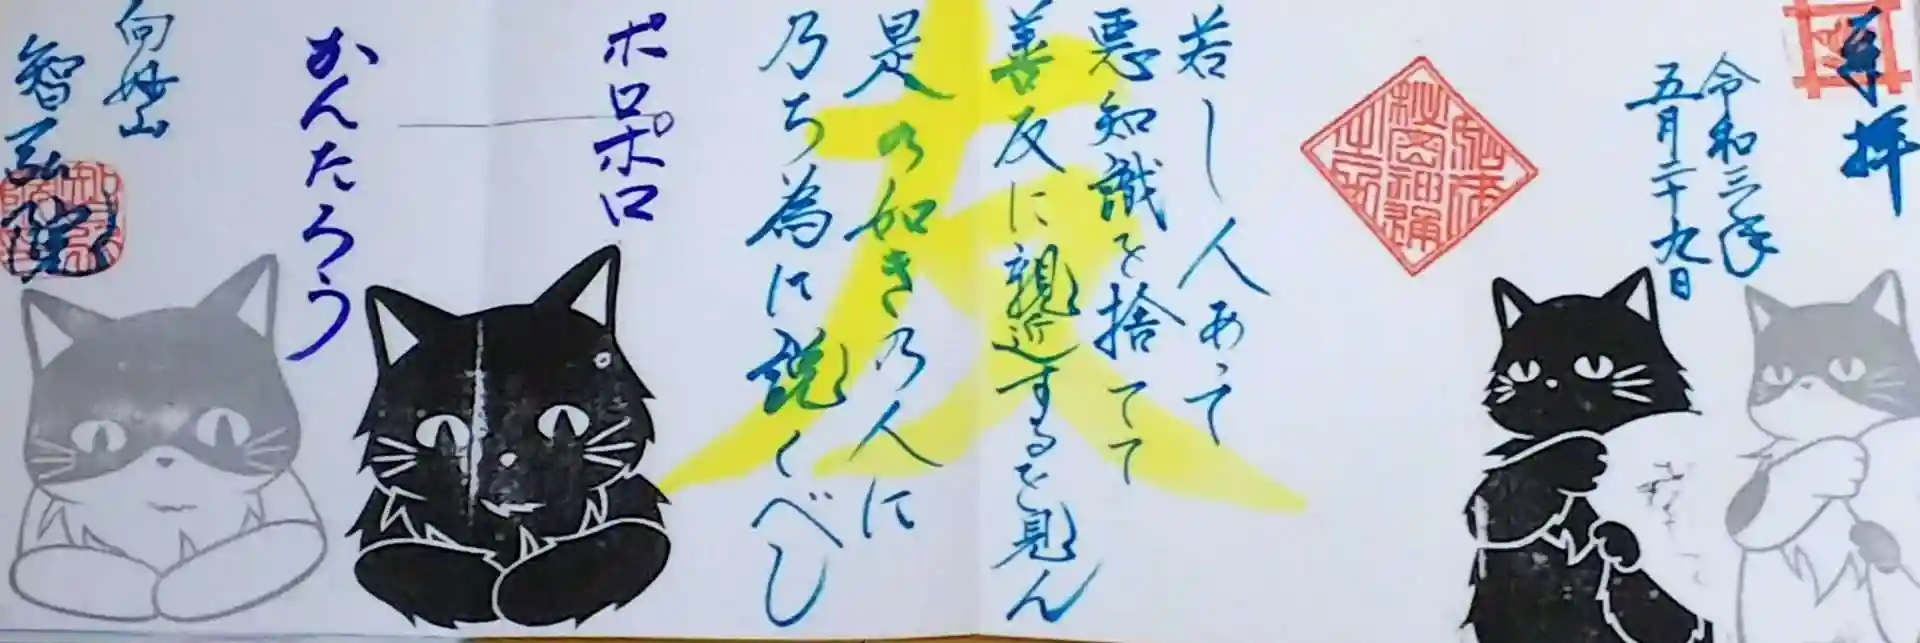 奉拝
令和三年
五月二十九日
若し人あって
悪知識を捨てて
善友に親近するを見ん
是の如きの人に
乃ち為に説くべし
友
ポロポロ
かんたろう
向妙山
智弘院